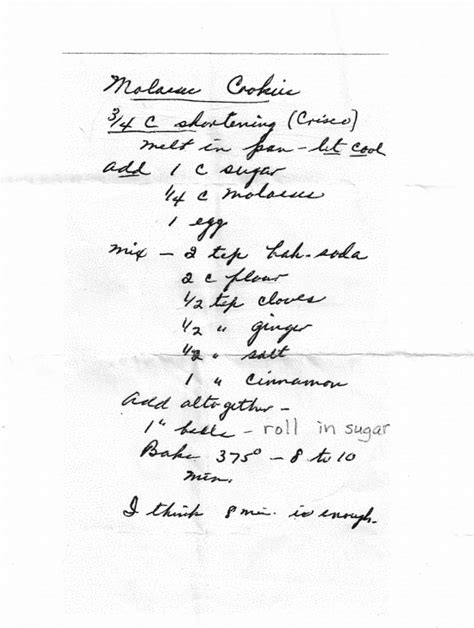 Molasses Cookies
3/4 C shortening (Crisco)
melt in pan - let cool
add 1 C sugar
1/4 C molasses
1 egg
mix - 2 tsp bak-soda
2 C flour
1/2 tsp cloves
1/2 " ginger
1/2 " salt
1 " cinnamon
Add altogether -
1" balls - roll in sugar
Bake 375° - 8 to 10
min.
I think 8 min. is enough.